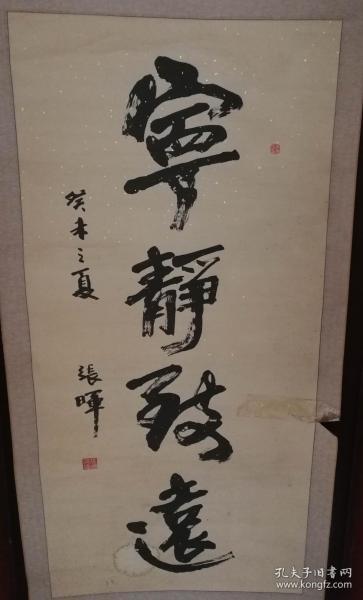 寧靜致遠
癸未之夏
張暉
孔夫子旧书网
www.kongfz.com